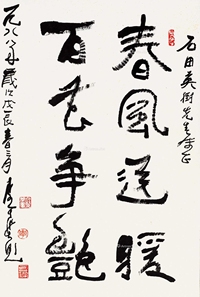 石田英樹先生属正
春風送暖
百花争艷
一九八八年歲次戊辰春三月